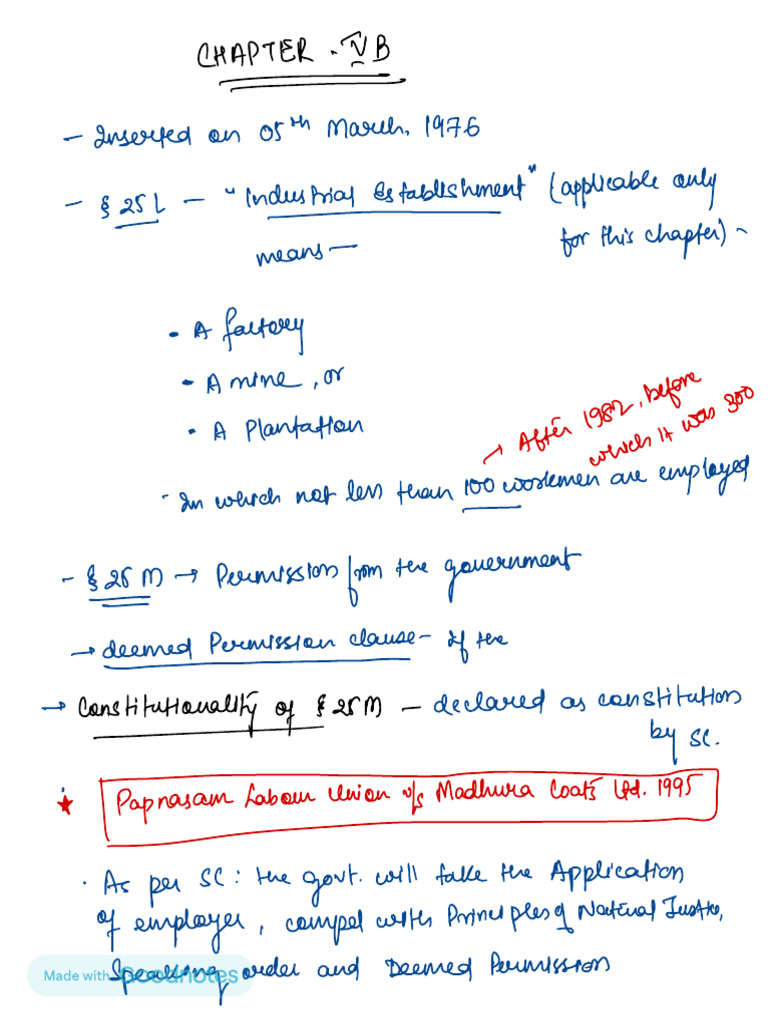 CHAPTER - V B
- Inserted on 05th March, 1976
- § 25 L - "Industrial Establishment" (applicable only
for this chapter) -
means -
• A factory
• A mine, or
• A Plantation
→ After 1982, before
which it was 300
- In which not less than 100 workmen are employed
- § 25 M → Permission from the government
→ deemed Permission clause - If the
→ Constitutionality of § 25 M - declared as constitution
by SC.
★ Papnasam Labour Union v/s Madhura Coats Ltd. 1995
• As per SC: the govt. will take the Application
of employer, compel with Principles of Natural Justice,
Speaking order and Deemed Permission
Made with Goodnotes